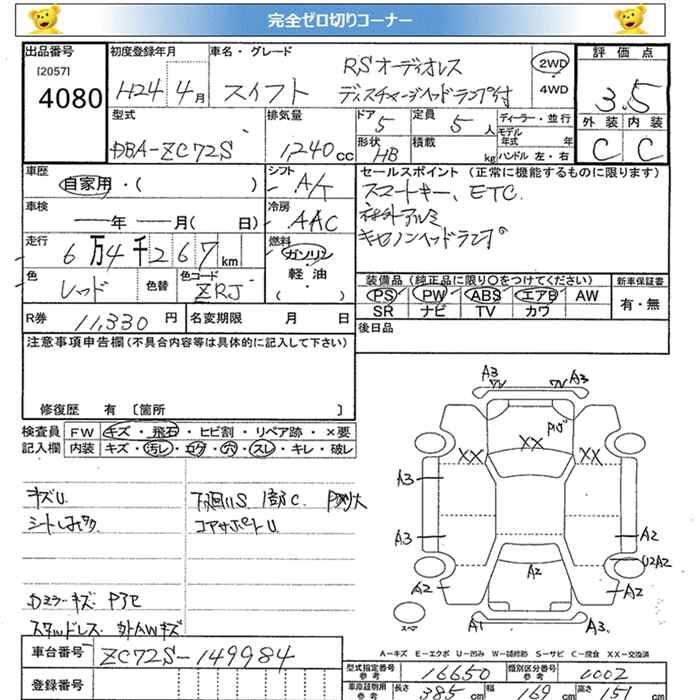 完全ゼロ切りコーナー
出品番号 初度登録年月 車名・グレード 評価点
[2057]
4080
H24 4月 スイフト RSオーディオレス
ディスチャージヘッドランプ付
2WD
4WD
3.5
外装 内装
C C
型式 排気量 ドア 定員 ディーラー・並行
DBA-ZC72S 1,240cc 5 5人 モデル年式 年
形状 積載 ハンドル 左・右
HB kg
車歴 シフト セールスポイント (正常に機能するものに限ります)
自家用・( ) A/T スマートキー、ETC.
車検 冷房 社外アルミ
年 月( 日) AAC キセノンヘッドランプ
走行 燃料
6万4千267km ガソリン
軽油
( )
色 色替 色コード
レッド ZRJ
装備品 (純正品に限り〇をつけてください) 新車保証書
PS PW ABS エアB AW 有・無
SR ナビ TV カワ
R券 11,330円 名変期限 月 日 後日品
注意事項申告欄(不具合内容等は具体的に記入して下さい)
修復歴 有 〔箇所 〕
検査員 FW キズ・飛石・ヒビ割・リペア跡・×要
記入欄 内装 キズ・汚レ・コゲ・穴・スレ・キレ・破レ
キズU 下廻りS 1部C
コアサポートU
Dミラーキズ
スタッドレス 外AWキズ
A3 A3
XX XX XX
A3
A3 A2
U2A2
A2 A2 A2
スペア A1 A3
A-キズ E-エクボ U-凹み W-補修跡 S-サビ C-腐食 XX-交換済
車台番号 ZC72S-149984
登録番号
型式指定番号 参考 16650 類別区分番号 参考 0002
車庫証明用 参考 長さ 385cm 幅 169cm 高さ 151cm